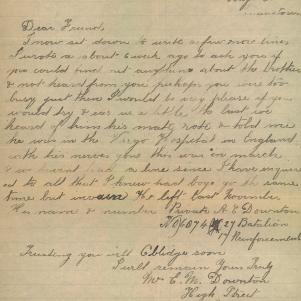 Dear Friend,
I now sit down to write a few more lines
I wrote a about 6 week ago to ask you if
you could find out anything about the brother
& not heard from you perhaps you were too
busy just then I would be very please if you
would try & ease us a little the last we
heard of him his mate rote & told us
he was in the Virgo Hospital in England
with his nerves gone this was on march
& we havnt had a line since I have inquired
ed to all that I knew had boys go the same
time but invain He left last November
His name & number Private A E Downton
No 6874 27 Battalion
17 Reinforcements
Trusting you will Oblidge soon
I will remain Yours Truly
Mr E. M. Downton
High Street